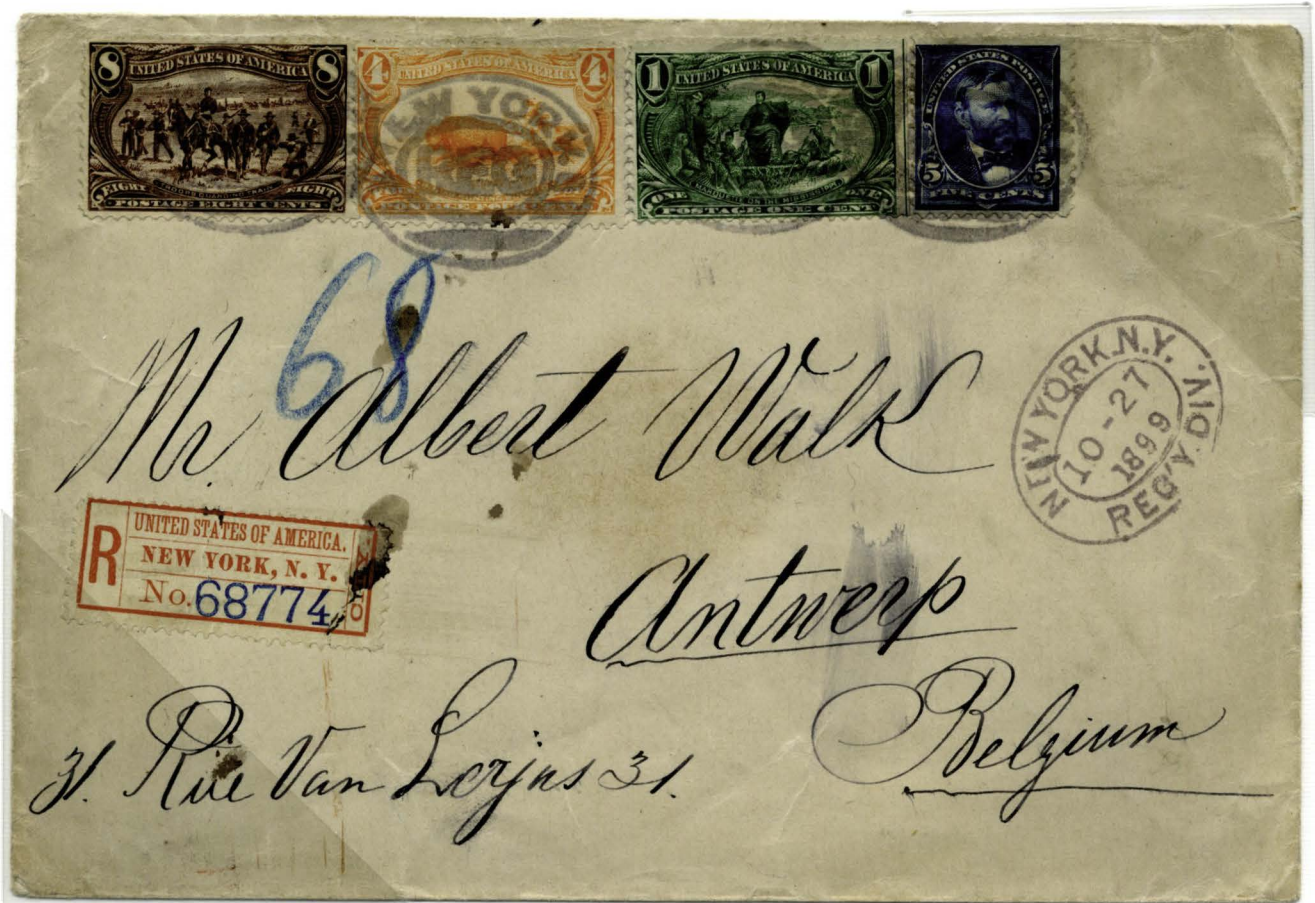 8 UNITED STATES OF AMERICA 8
EIGHT EIGHT
POSTAGE EIGHT CENTS
4 UNITED STATES OF AMERICA 4
NEW YORK
REG
1 UNITED STATES OF AMERICA 1
MARQUETTE ON THE MISSISSIPPI
ONE ONE
POSTAGE ONE CENT
UNITED STATES POSTAGE
5 FIVE CENTS 5
68
Mr Albert Walk
NEW YORK, N.Y.
10-27
1899
REG'Y. DIV.
R
UNITED STATES OF AMERICA.
NEW YORK, N. Y.
No. 68774
Antwerp
Belgium
31. Rue Van 31.